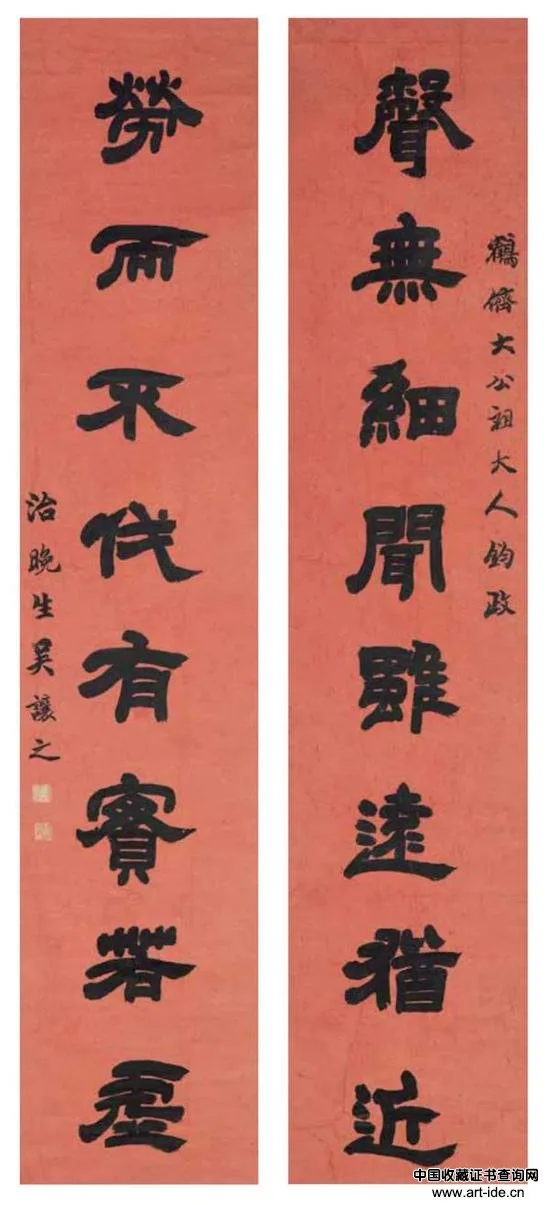 鶴儕大公祖大人鈞政
聲無細聞雖遠猶近
勞而不伐有實若虛
治晚生吳讓之
中国收藏证书查询网
www.art-ide.cn